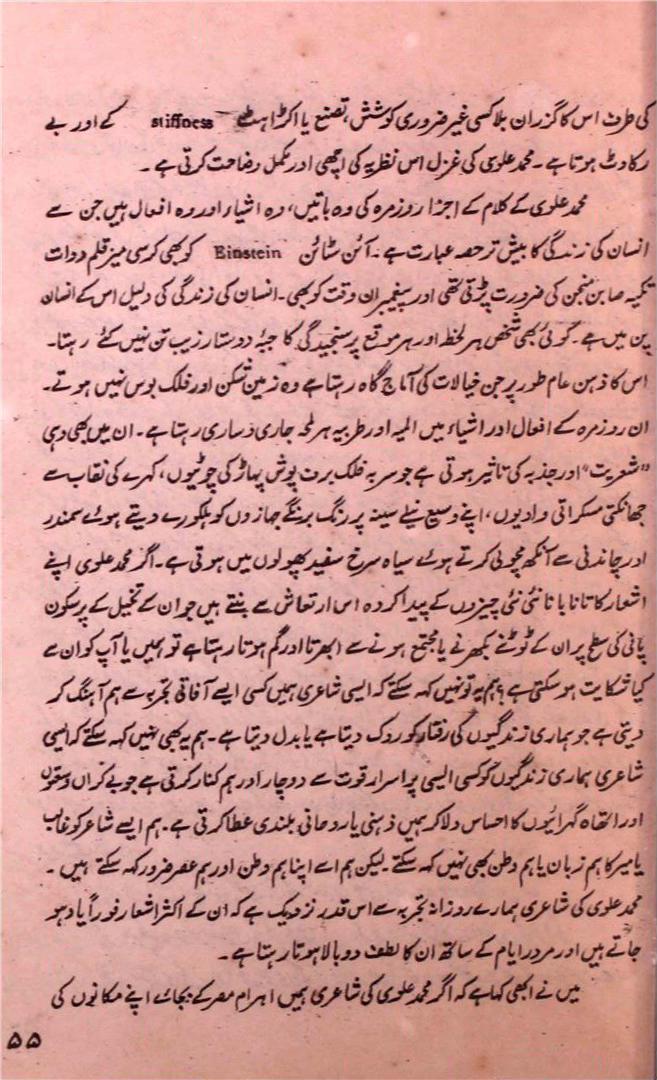 کی طرف اس کا گزران بلا کسی غیر ضروری کوشش، تصنع یا اکڑاہٹ stiffness کے اور بے
رکاوٹ ہوتا ہے۔ محمد علوی کی غزل اس نظریہ کی اچھی اور مکمل وضاحت کرتی ہے۔
محمد علوی کے کلام کے اجزا روزمرہ کی وہ باتیں، وہ اشیاء اور وہ افعال ہیں جن سے
انسان کی زندگی کا بیش تر حصہ عبارت ہے۔ آئن سٹائن Einstein کو بھی کرسی میز قلم دوات
تکیہ صابن منجن کی ضرورت پڑتی تھی اور پیغمبران وقت کو بھی۔ انسان کی زندگی کی دلیل اس کے انسان
پن میں ہے۔ کوئی بھی شخص ہر لحظہ اور ہر موقع پر سنجیدگی کا جبّہ و دستار زیب تن نہیں کئے رہتا۔
اس کا ذہن عام طور پر جن خیالات کی آماج گاہ رہتا ہے وہ زمین شکن اور فلک بوس نہیں ہوتے۔
ان روزمرہ کے افعال اور اشیاء میں المیہ اور طربیہ ہر لمحہ جاری و ساری رہتا ہے۔ ان میں بھی وہی
"شعریت" اور جذبہ کی تاثیر ہوتی ہے جو سر بہ فلک برف پوش پہاڑ کی چوٹیوں، کہرے کی نقاب سے
جھانکتی مسکراتی وادیوں، اپنے وسیع نیلے سینہ پر رنگ برنگے جہازوں کو ہلکورے دیتے ہوئے سمندر
اور چاندنی سے آنکھ مچولی کرتے ہوئے سیاہ سرخ سفید پھولوں میں ہوتی ہے۔ اگر محمد علوی اپنے
اشعار کا تانا بانا نئی نئی چیزوں کے پیدا کردہ اس ارتعاش سے بنتے ہیں جو ان کے تخیل کے پرسکون
پانی کی سطح پر ان کے ٹوٹنے بکھرنے یا مجتمع ہونے سے ابھرتا اور گم ہوتا رہتا ہے تو ہمیں یا آپ کو ان سے
کیا شکایت ہو سکتی ہے؟ ہم یہ تو نہیں کہہ سکتے کہ ایسی شاعری ہمیں کسی ایسے آفاقی تجربہ سے ہم آہنگ کر
دیتی ہے جو ہماری زندگیوں کی رفتار کو روک دیتا ہے یا بدل دیتا ہے۔ ہم یہ بھی نہیں کہہ سکتے کہ ایسی
شاعری ہماری زندگیوں کو کسی ایسی پر اسرار قوت سے دوچار اور ہم کنار کرتی ہے جو بے کراں وسعتوں
اور اتھاہ گہرائیوں کا احساس دلا کر ہمیں ذہنی یا روحانی بلندی عطا کرتی ہے۔ ہم ایسے شاعر کو غالب
یا میر کا ہم زبان یا ہم وطن بھی نہیں کہہ سکتے۔ لیکن ہم اسے اپنا ہم وطن اور ہم عصر ضرور کہہ سکتے ہیں۔
محمد علوی کی شاعری ہمارے روزانہ تجربہ سے اس قدر نزدیک ہے کہ ان کے اکثر اشعار فوراً یاد ہو
جاتے ہیں اور مرور ایام کے ساتھ ان کا لطف دوبالا ہوتا رہتا ہے۔
میں نے ابھی کہا ہے کہ اگر محمد علوی کی شاعری ہمیں اہرام مصر کے بجائے اپنے مکانوں کی
۵۵